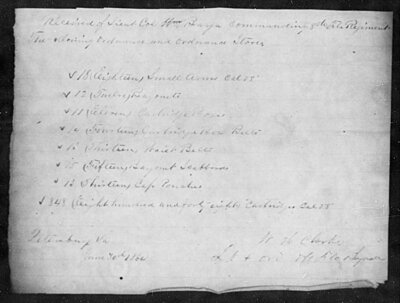 Received of Lieut Col Wm Baya Commanding 8th Fla Regiment
The following Ordnance and Ordnance Stores
18 (Eighteen) Small Arms Cal 58
12 Twelve Bayonets
11 Eleven Cartridge Boxes
14 Fourteen Cartridge Box Belts
13 Thirteen Waist Belts
15 Fifteen Bayonet Scabbards
13 Thirteen Cap Pouches
848 (Eight hundred and forty eight) Cartridges Cal 58
Petersburg Va
June 30th 1864
W. H.
Lt & Ord Off